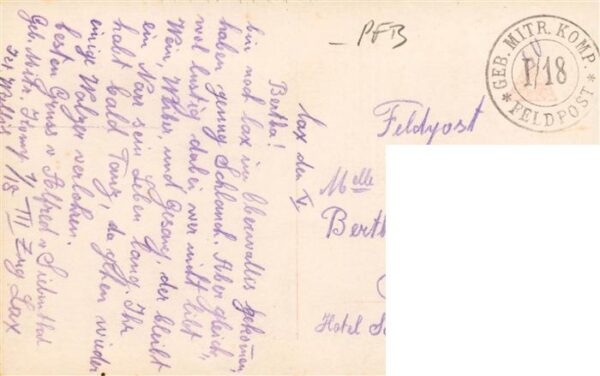 - PFB
GEB. MITR. KOMP.
I/18
* FELDPOST *
Feldpost
Melle
Berth
Hotel S
Lax den V
Bertha!
bin not lax im Oberwallis gekomen,
haben genug Schland. Aber gleich
wol lustig dabei wer nicht libt
Wein, Weiber, und Gesang, der bleibt
ein Nar sein Leben lang. Ihr
habt bald Tanz, da gehen wieder
einige Walzer verlohren.
besten Gruss v Alfred v Siebenthal
Geb. Mitr. Komp I/18 III Zug Lax
Wallis